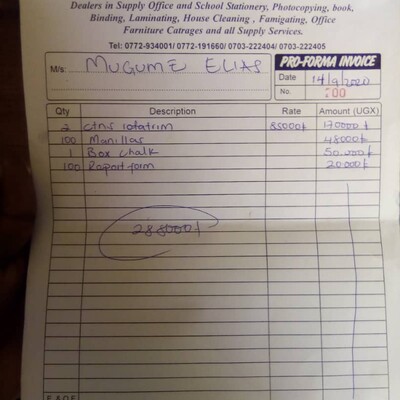 Dealers in Supply Office and School Stationery, Photocopying, book,
Binding, Laminating, House Cleaning , Famigating, Office
Farniture Catrages and all Supply Services.
Tel: 0772-934001/ 0772-191660/ 0703-222404/ 0703-222405
M/s MUGUME ELIAS PRO-FORMA INVOICE
Date 14/9/2020
No. 700
Qty Description Rate Amount (UGX)
2 ctns rotatrim 85000/= 170000/=
100 Manillas 48000/=
1 Box chalk 50.000/=
100 Raport form 20000/=
288000/=
E.&O.E